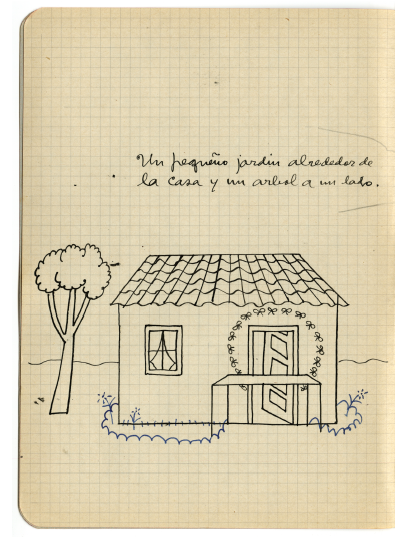 Un pequeño jardin alrededor de
la casa y un arbol a un lado.